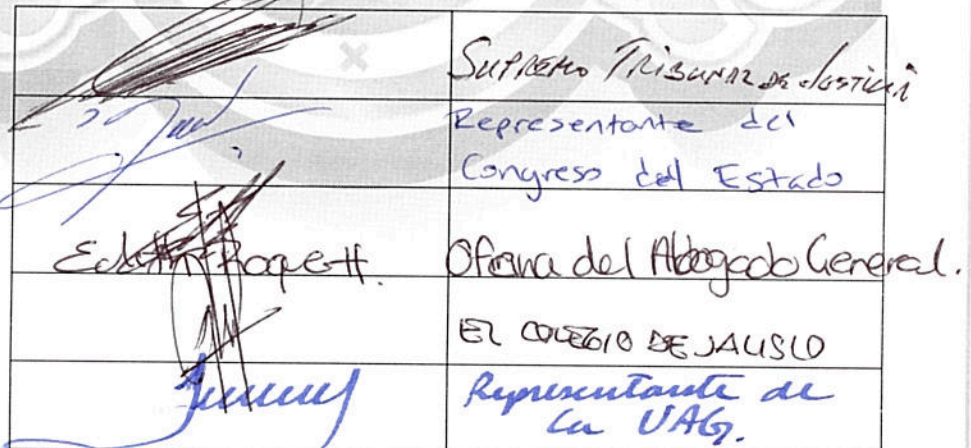 Supremo Tribunal de Justicia
Representante del
Congreso del Estado
Edith Roquett. Oficina del Abogado General.
EL COLEGIO DE JALISCO
Representante de
la UAG.